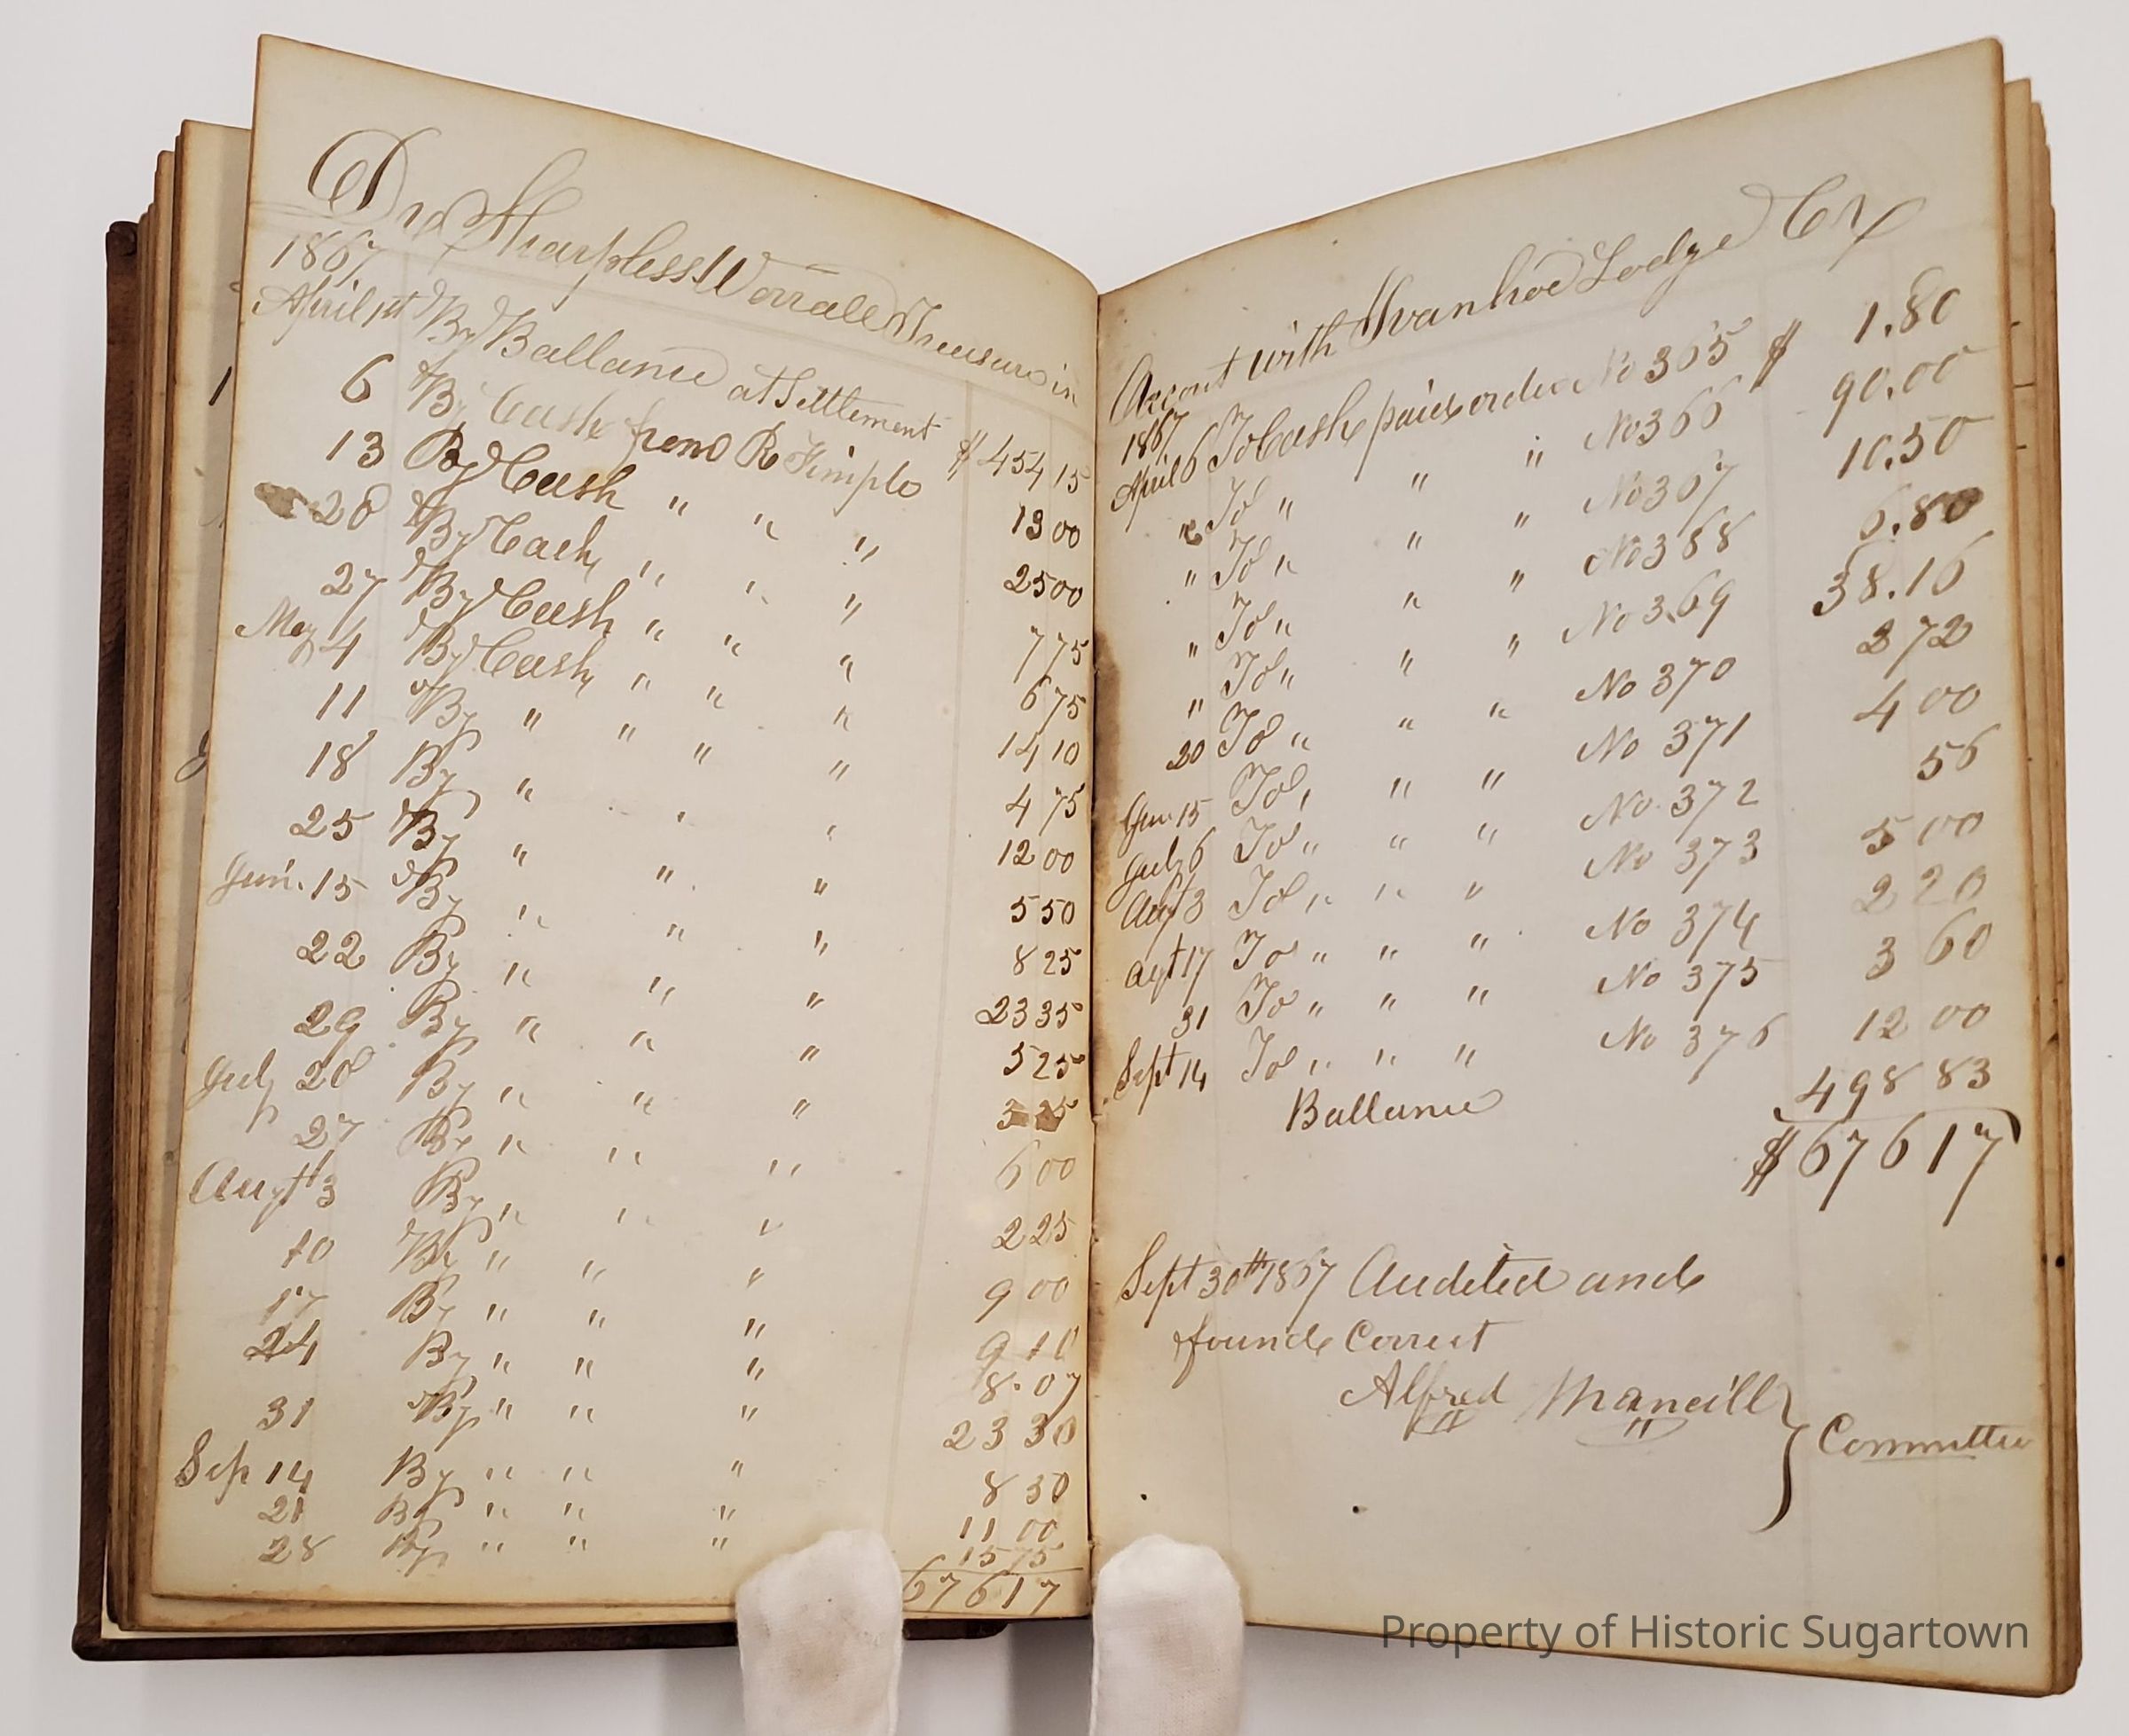 Dr Sharpless Worrall Treasurer in
1867
April 1st By Ballance at Settlement $ 454 15
6 By Cash from R Fimple 13 00
13 By Cash " " " 25 00
20 By Cash " " " 7 75
27 By Cash " " " 6 75
May 4 By Cash " " " 14 10
11 By " " " " 4 75
18 By " " " 12 00
25 By " " " 5 50
Jun. 15 By " " " 8 25
22 By " " " 23 35
29 By " " " 5 25
July 20 By " " "
27 By " " " 6 00
Augt 3 By " " " 2 25
10 By " " " 9 00
17 By " " " 9 10
24 By " " " 8.07
31 By " " " 23 30
Sep 14 By " " " 8 30
21 By " " " 11 00
28 By " " " 15 75
676 17
Account with Ivanhoe Lodge Cr
1867
April 6 To Cash paid order No 365 $ 1.80
" To " " " No 366 90.00
" To " " " No 367 10.50
" To " " " No 368 6.80
" To " " " No 369 38.16
20 To " " " No 370 2 72
Jun 15 To " " " No 371 4 00
July 6 To " " " No 372 56
Augt 3 To " " " No 373 5 00
Augt 17 To " " " No 374 2 20
31 To " " " No 375 3 60
Sept 14 To " " " No 376 12 00
Ballance 498 83
$ 676 17
Sept 30th 1867 Audited and
found Correct
Alfred Mancill } Committee
Property of Historic Sugartown